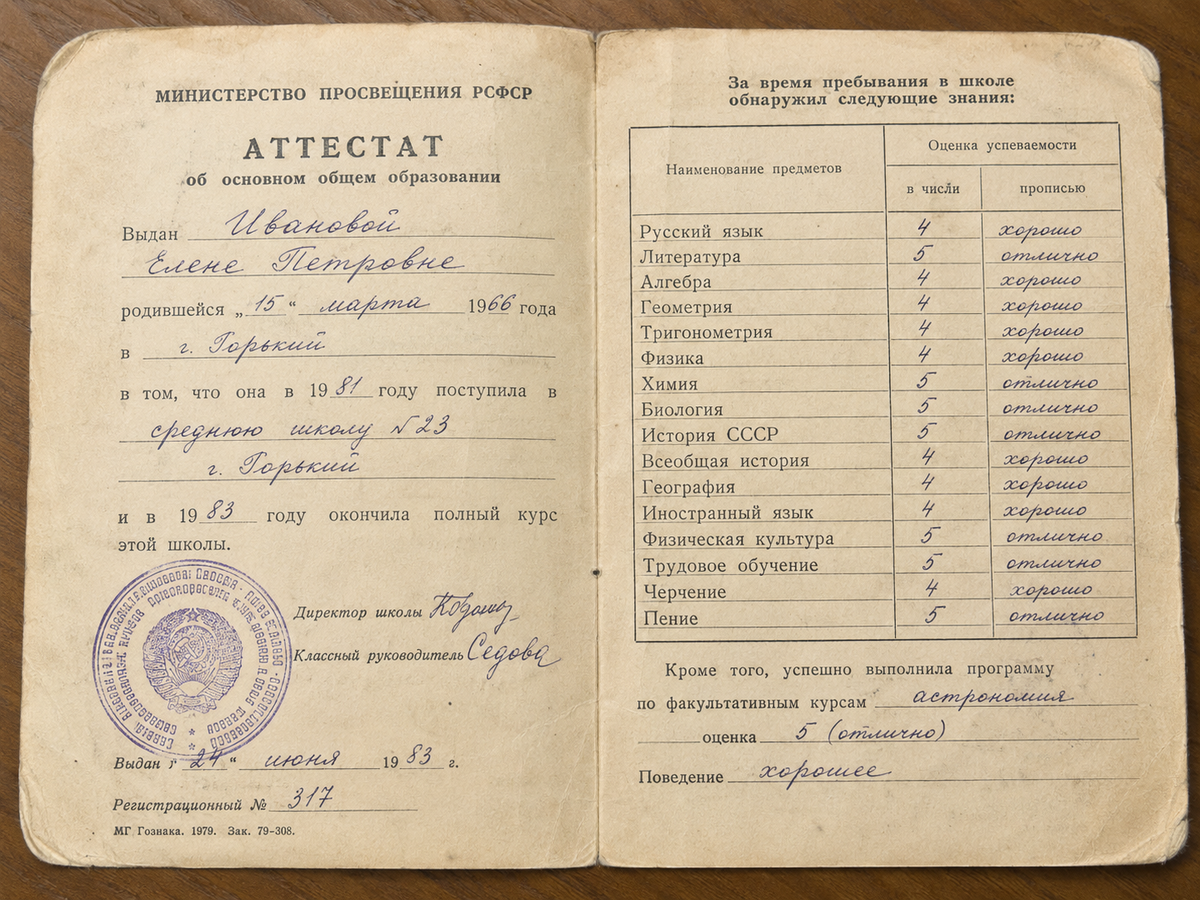 МИНИСТЕРСТВО ПРОСВЕЩЕНИЯ РСФСР
АТТЕСТАТ
об основном общем образовании
Выдан Ивановой
Елене Петровне
родившейся „ 15 “ марта 1966 года
в г. Горький
в том, что она в 1981 году поступила в
среднюю школу №23
г. Горький
и в 1983 году окончила полный курс
этой школы.
Директор школы
Классный руководитель Седова
Выдан 24 “ июня 1983 г.
Регистрационный № 317
МГ Гознака. 1979. Зак. 79-308.
За время пребывания в школе
обнаружил следующие знания:
Наименование предметов Оценка успеваемости
в числи прописью
Русский язык 4 хорошо
Литература 5 отлично
Алгебра 4 хорошо
Геометрия 4 хорошо
Тригонометрия 4 хорошо
Физика 4 хорошо
Химия 5 отлично
Биология 5 отлично
История СССР 5 отлично
Всеобщая история 4 хорошо
География 4 хорошо
Иностранный язык 4 хорошо
Физическая культура 5 отлично
Трудовое обучение 5 отлично
Черчение 4 хорошо
Пение 5 отлично
Кроме того, успешно выполнила программу
по факультативным курсам астрономия
оценка 5 (отлично)
Поведение хорошее